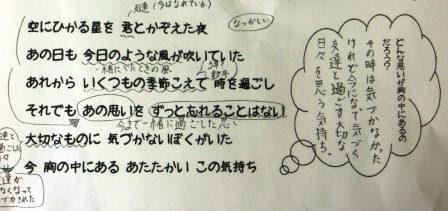 友達（今はなれている）
なつかしい
空にひかる星を 君とかぞえた夜
あの日も 今日のような風が吹いていた
一緒にいたときの風
あれから いくつもの季節こえて 時を過ごし
それでも あの思いを ずっと忘れることはない
今まで一緒に過ごした思い
大切なものに 気づかないぼくがいた
今 胸の中にある あたたかい この気持ち
どんな思いが胸の中にあるの
だろう？
その時は気づかなかった
けれど今になって気づく
友達と過ごす大切な
日々を思う気持ち。